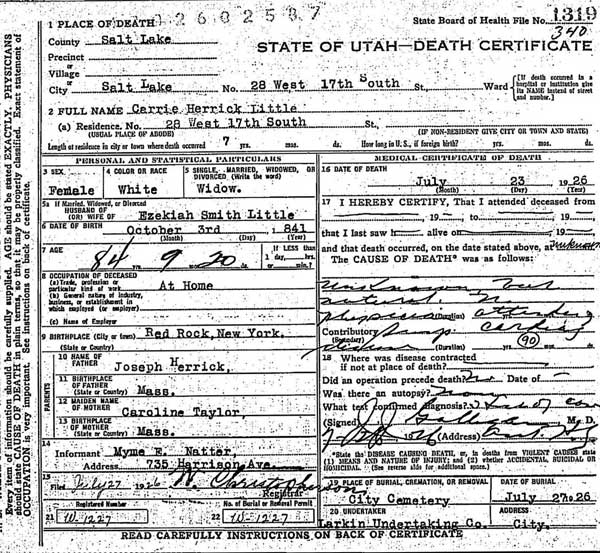 1 PLACE OF DEATH
1262587
State Board of Health File No. 1319
340
County Salt Lake
Precinct
Village
City Salt Lake No. 28 West 17th South St., Ward
[If death occurred in a hospital or institution give its NAME instead of street and number.]
STATE OF UTAH—DEATH CERTIFICATE
2 FULL NAME Carrie Herrick Little
(a) Residence. No. 28 West 17th South St.,
(USUAL PLACE OF ABODE) (IF NON-RESIDENT GIVE CITY OR TOWN AND STATE)
Length of residence in city or town where death occurred 7 yrs. mos. ds. How long in U.S., if foreign birth? yrs. mos. ds.
PERSONAL AND STATISTICAL PARTICULARS
3 SEX
Female
4 COLOR OR RACE
White
5 SINGLE, MARRIED, WIDOWED, OR DIVORCED (Write the word)
Widow.
5a If Married, Widowed, or Divorced
HUSBAND OF
(OR) WIFE OF Ezekiah Smith Little
6 DATE OF BIRTH
October 3rd 1841
(Month) (Day) (Year)
7 AGE
84 yrs. 9 mos. 20 ds.
If LESS than
1 day, hrs.
or min.?
8 OCCUPATION OF DECEASED
(a) Trade, profession or particular kind of work
(b) General nature of industry, business, or establishment in which employed (or employer)
(c) Name of Employer
At Home
9 BIRTHPLACE (City or town) Red Rock, New York.
(State or Country)
10 NAME OF FATHER
Joseph Herrick,
11 BIRTHPLACE OF FATHER
(State or Country) Mass.
12 MAIDEN NAME OF MOTHER
Caroline Taylor,
13 BIRTHPLACE OF MOTHER
(State or Country) Mass.
14
Informant Myme E. Natter,
Address 735 Harrison Ave.
15
Filed July 27 1926
Registrar
Registered Number
21 W-1227
No. of Burial or Removal Permit
22 W-1227
MEDICAL CERTIFICATE OF DEATH
16 DATE OF DEATH
July 23 1926
(Month) (Day) (Year)
17 I HEREBY CERTIFY, That I attended deceased from
19 to 19
that I last saw h alive on 19
and that death occurred, on the date stated above, at unknown
The CAUSE OF DEATH* was as follows:
Unknown, but
natural. No
physician attending
(Duration)
Contributory
(Secondary)
(Duration) yrs. mos. ds.
(90)
18 Where was disease contracted
if not at place of death?
Did an operation precede death? No Date of
Was there an autopsy? no
What test confirmed diagnosis?
(Signed) M. D.
(Address)
*State the DISEASE CAUSING DEATH, or, in deaths from VIOLENT CAUSES state (1) MEANS AND NATURE OF INJURY; and (2) whether ACCIDENTAL, SUICIDAL OR HOMICIDAL. (See reverse side for additional space.)
19 PLACE OF BURIAL, CREMATION, OR REMOVAL
City Cemetery
DATE OF BURIAL
July 27 26
20 UNDERTAKER
Larkin Undertaking Co.
ADDRESS
City.
READ CAREFULLY INSTRUCTIONS ON BACK OF CERTIFICATE
Every item of information should be carefully supplied. AGE should be stated EXACTLY. PHYSICIANS
should state CAUSE OF DEATH in plain terms, so that it may be properly classified. Exact statement of
OCCUPATION is very important. See instructions on back of certificate.